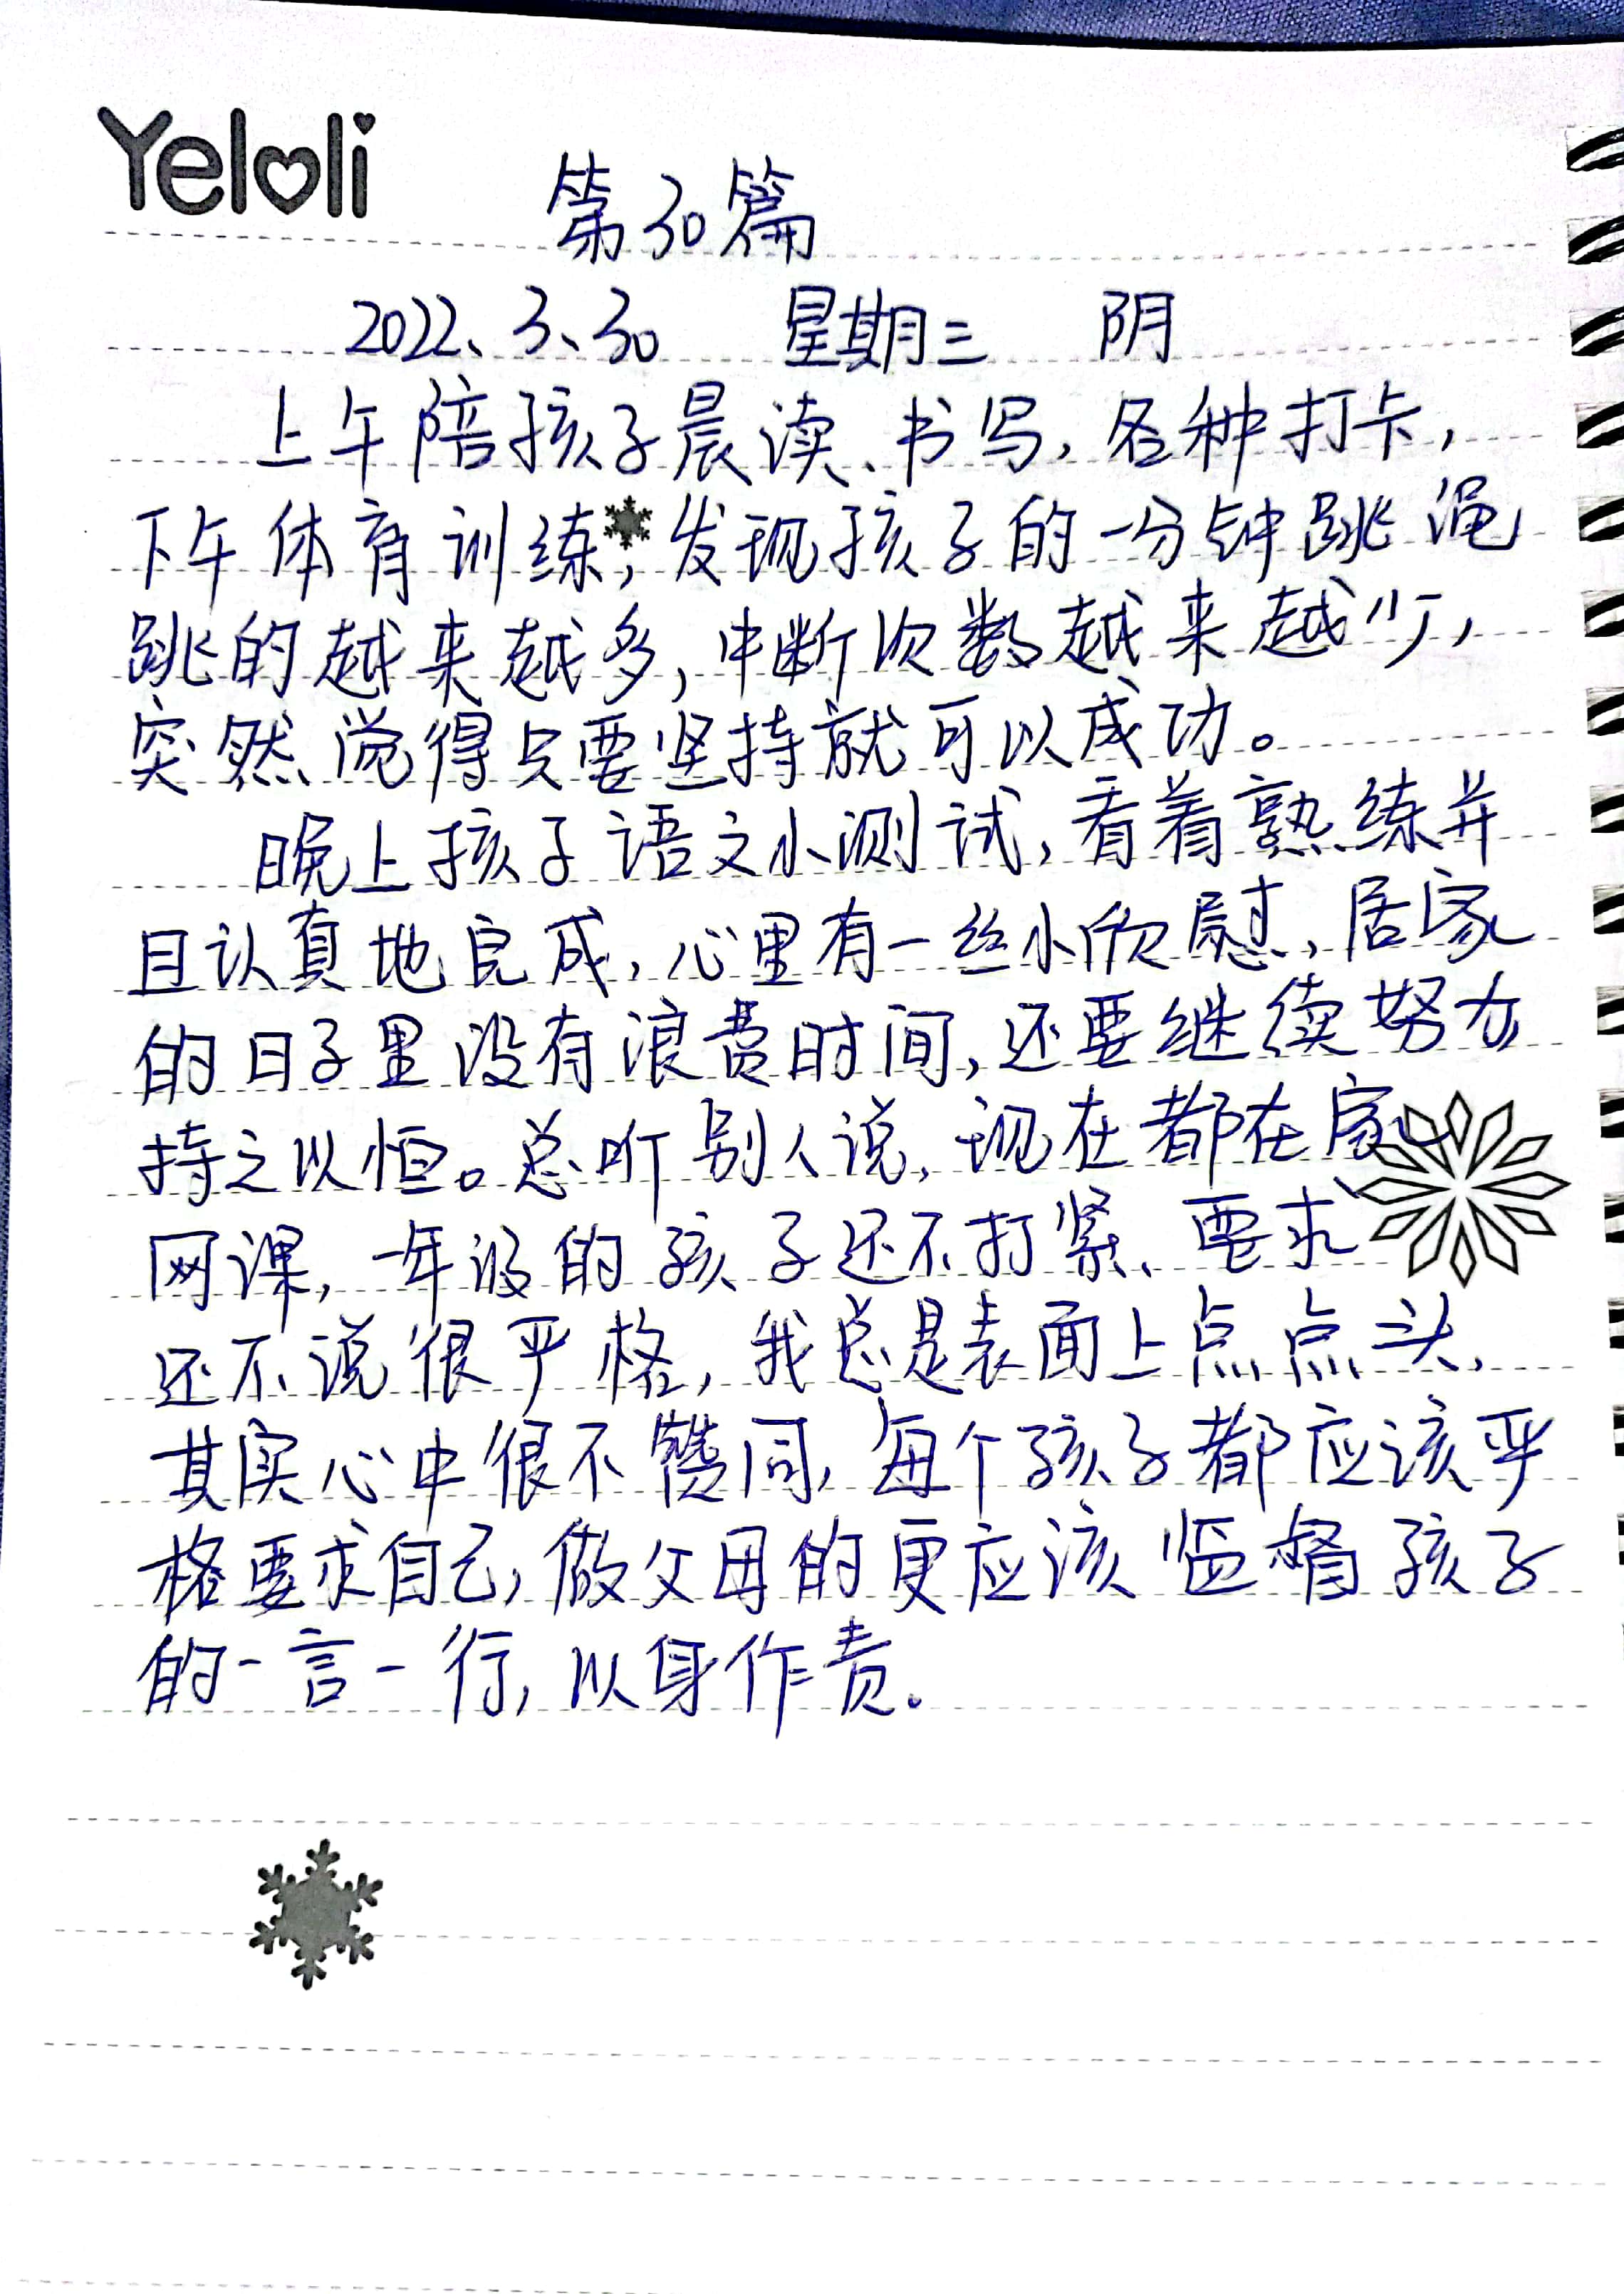 Yeloli
第30篇
2022、3、30 星期三 阴
上午陪孩子晨读、书写，各种打卡，
下午体育训练，发现孩子的一分钟跳绳
跳的越来越多，中断次数越来越少，
突然觉得只要坚持就可以成功。
晚上孩子语文小测试，看着熟练并
且认真地完成，心里有一丝小欣慰，居家
的日子里没有浪费时间，还要继续努力
持之以恒。总听别人说，现在都在家
网课，一年级的孩子还不打紧、要求
还不说很严格，我总是表面上点点头，
其实心中很不赞同，每个孩子都应该严
格要求自己，做父母的更应该监督孩子
的一言一行，以身作责。